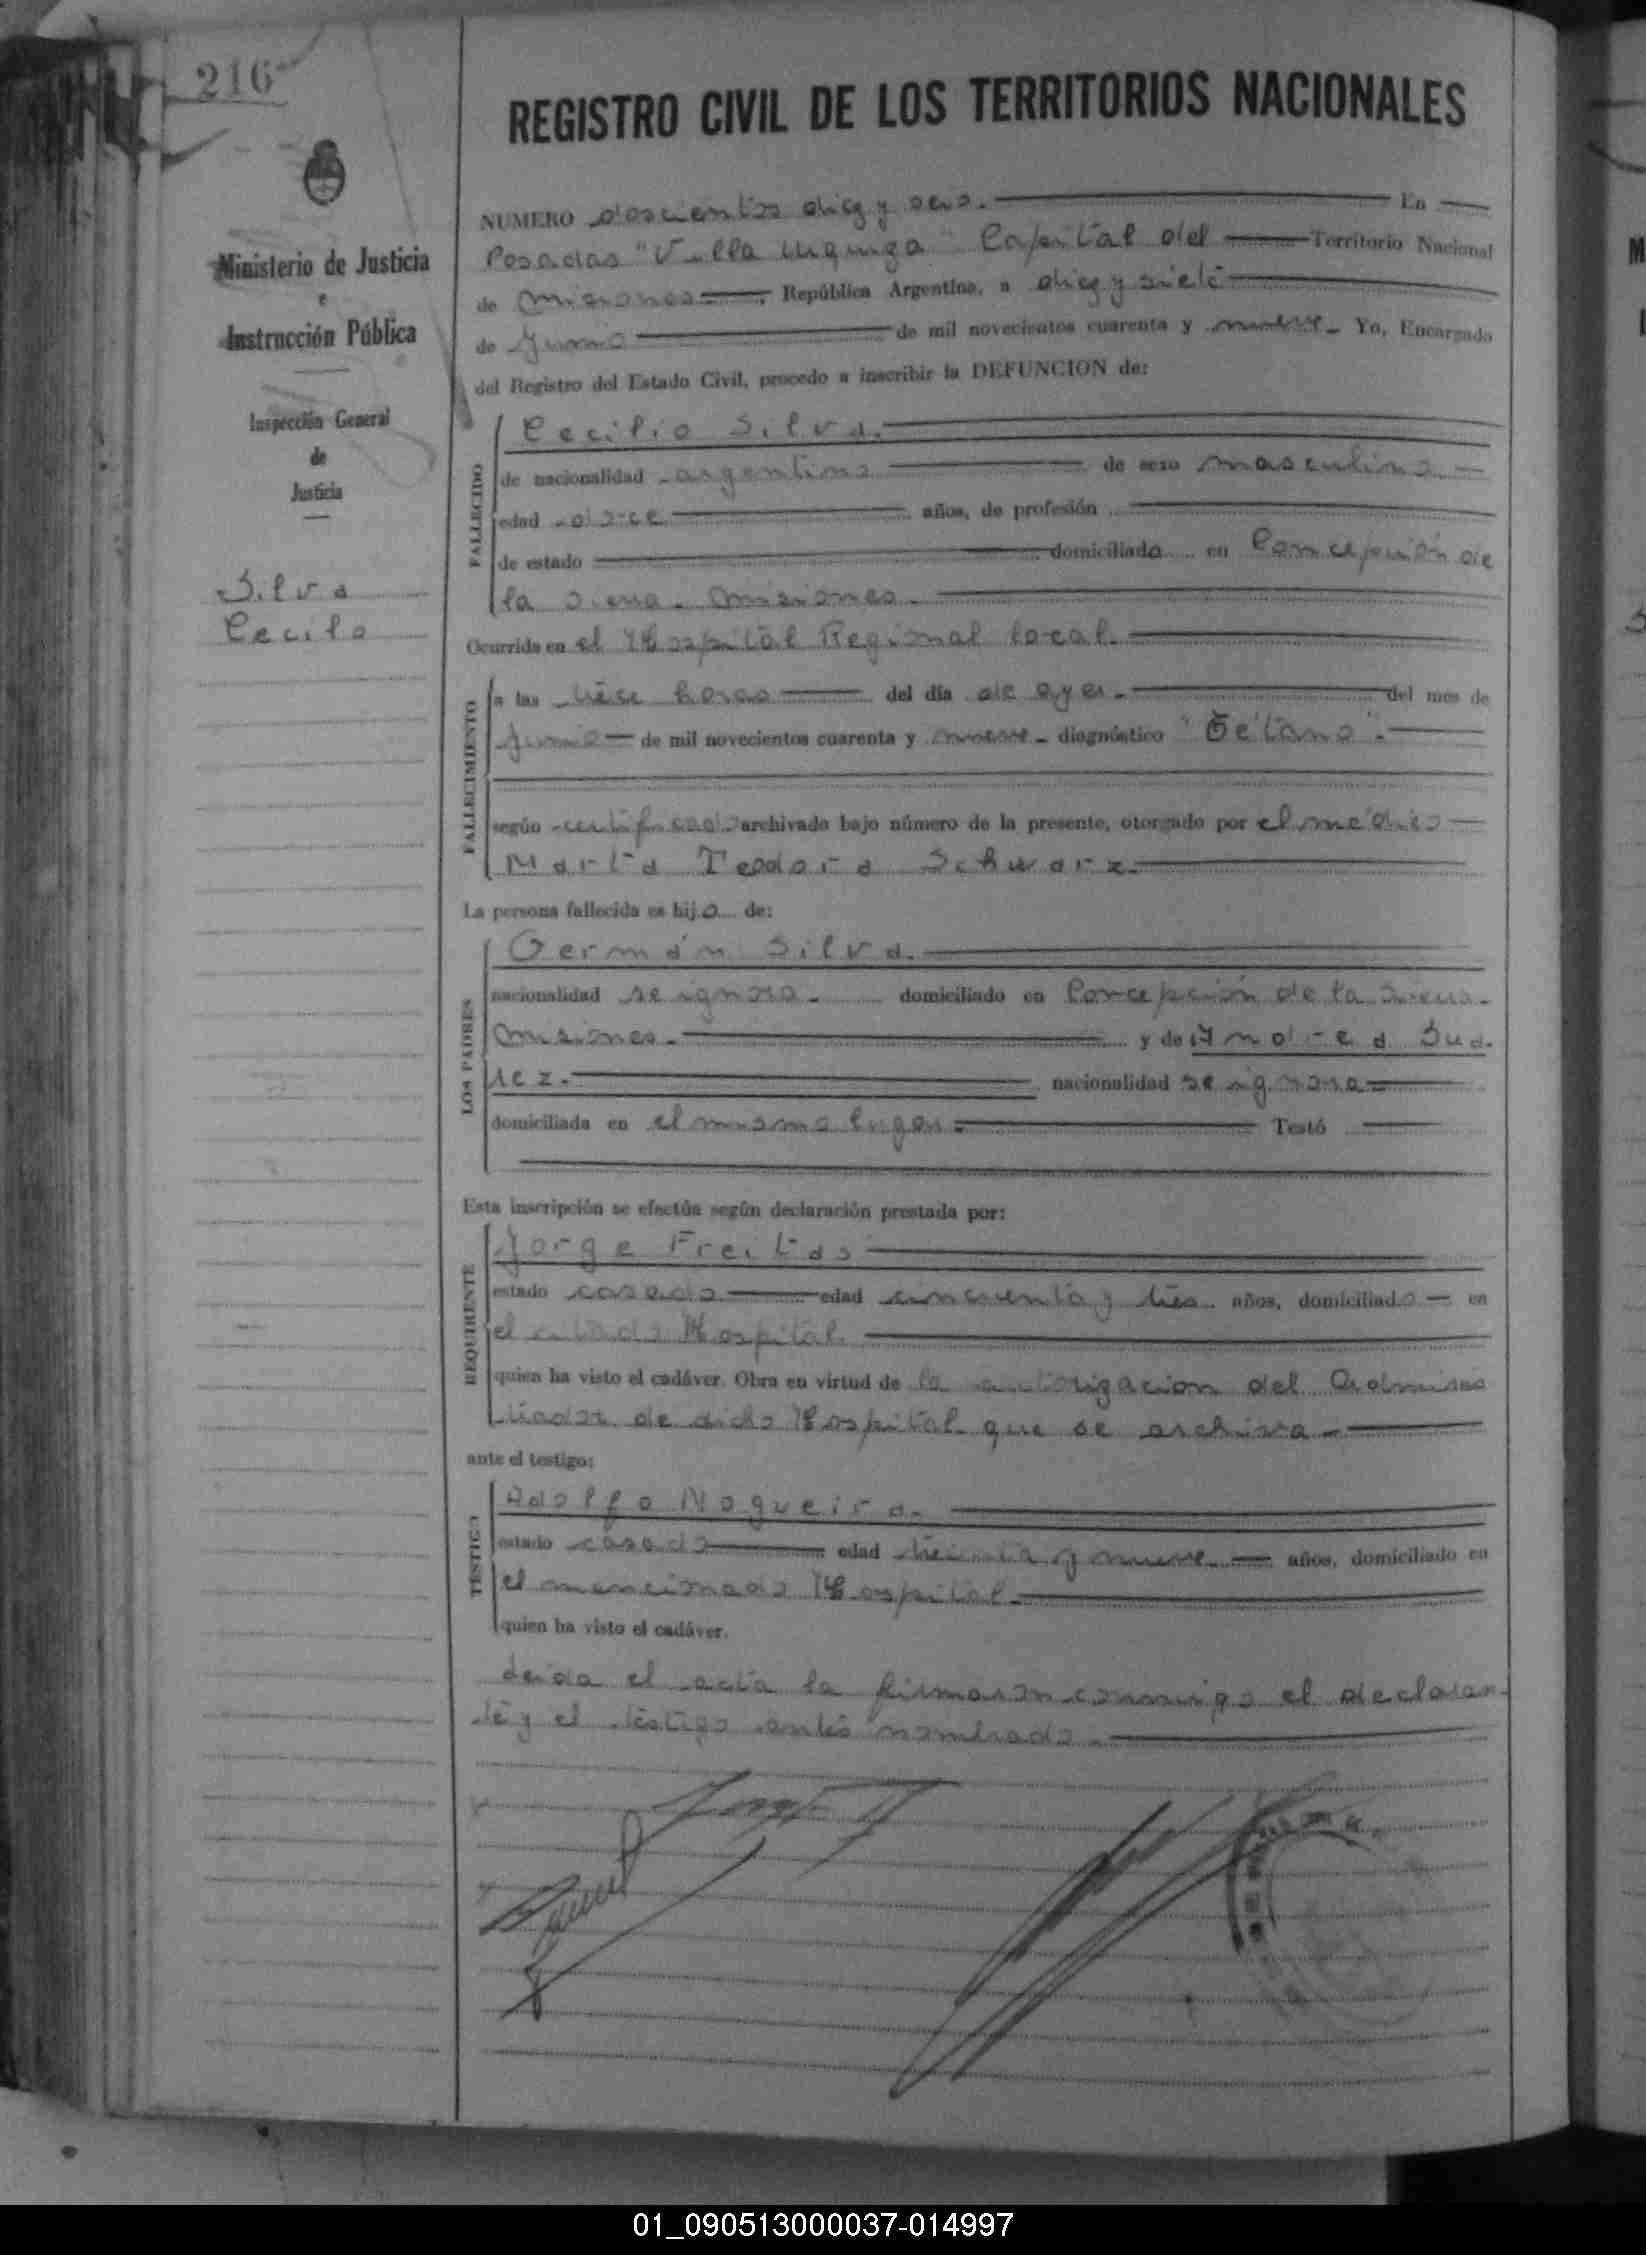 216
Ministerio de Justicia
e
Instrucción Pública
Inspección General
de
Justicia
Silva
Cecilo
REGISTRO CIVIL DE LOS TERRITORIOS NACIONALES
NUMERO doscientos diez y seis. En
Posadas "Villa Urquiza" Capital del Territorio Nacional
de Misiones, República Argentina, a diez y siete
de Junio de mil novecientos cuarenta y nueve. Yo, Encargado
del Registro del Estado Civil, procedo a inscribir la DEFUNCION de:
FALLECIDO
Cecilio Silva.
de nacionalidad argentino de sexo masculino.
edad doce años, de profesión
de estado domiciliado en Concepción de
la Sierra. Misiones.
Ocurrida en el Hospital Regional local.
FALLECIMIENTO
a las trece horas del día de ayer. del mes de
Junio de mil novecientos cuarenta y nueve diagnóstico "Tétano".
según certificado archivado bajo número de la presente, otorgado por el médico
Marta Teodora Schwarz.
La persona fallecida es hijo de:
LOS PADRES
Germán Silva.
nacionalidad se ignora. domiciliado en Concepción de la Sierra.
Misiones. y de Andrea Suá-
rez. nacionalidad se ignora
domiciliada en el mismo lugar. Testó
Esta inscripción se efectúa según declaración prestada por:
REQUIRENTE
Jorge Freitas
estado casado edad cincuenta y tres años, domiciliado en
el citado Hospital.
quien ha visto el cadáver. Obra en virtud de la autorizacion del Adminis
trador de dicho Hospital que se archiva.
ante el testigo:
TESTIGO
Adolfo Nogueira.
estado casado edad treinta y nueve años, domiciliado en
el mencionado Hospital.
quien ha visto el cadáver.
Leida el acta la firmaron conmigo el declaran-
te y el testigo antes nombrado.
01_090513000037-014997